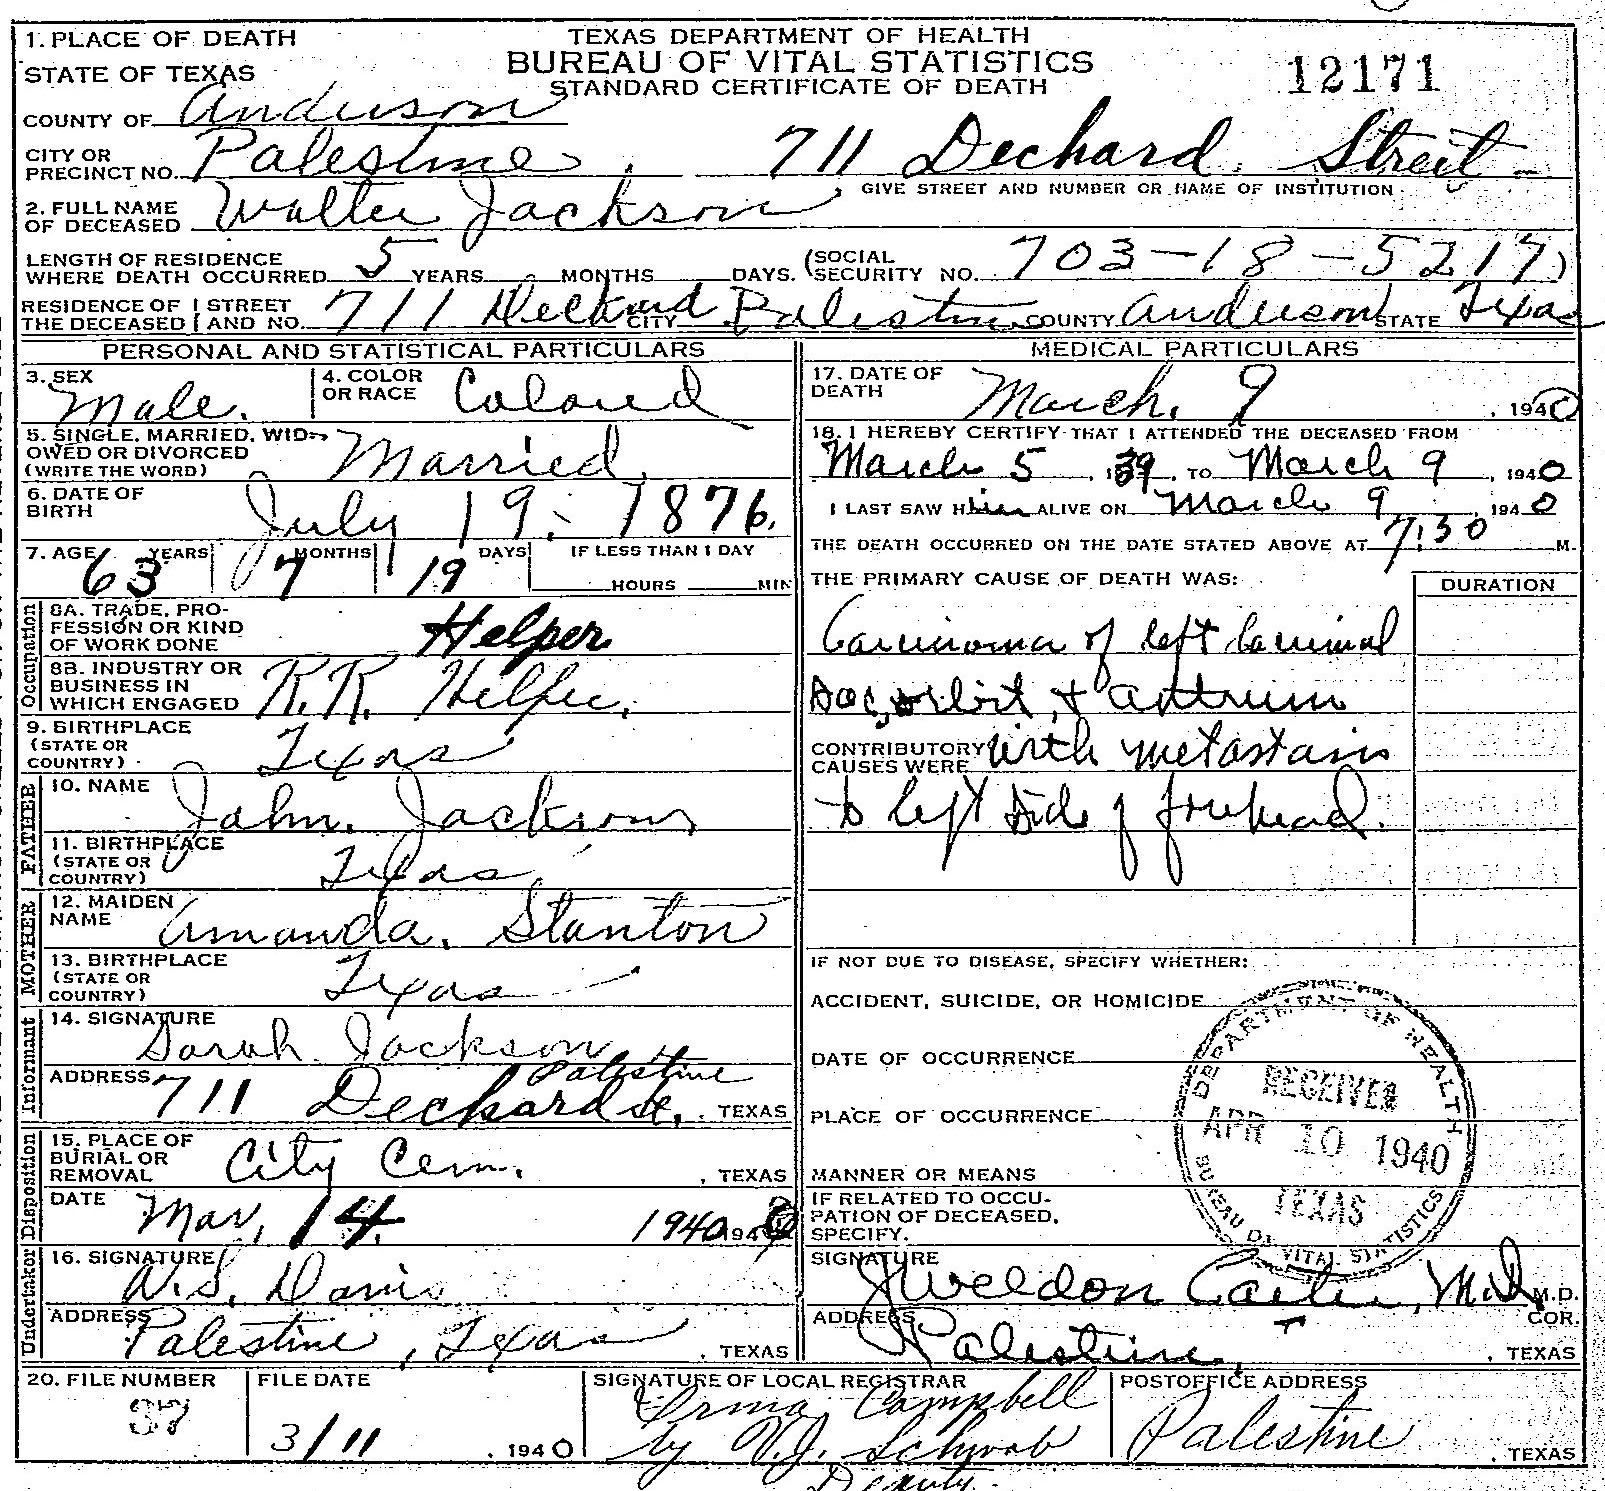 1. PLACE OF DEATH
STATE OF TEXAS
TEXAS DEPARTMENT OF HEALTH
BUREAU OF VITAL STATISTICS
STANDARD CERTIFICATE OF DEATH
12171
COUNTY OF Anderson
CITY OR PRECINCT NO. Palestine, 711 Dechard Street
GIVE STREET AND NUMBER OR NAME OF INSTITUTION
2. FULL NAME OF DECEASED Walter Jackson
LENGTH OF RESIDENCE WHERE DEATH OCCURRED 5 YEARS MONTHS DAYS. (SOCIAL SECURITY NO. 703-18-5217)
RESIDENCE OF THE DECEASED STREET AND NO. 711 Deckard CITY Palestine COUNTY Anderson STATE Texas
PERSONAL AND STATISTICAL PARTICULARS
3. SEX Male. 4. COLOR OR RACE Colored
5. SINGLE, MARRIED, WIDOWED OR DIVORCED (WRITE THE WORD) Married
6. DATE OF BIRTH July 19. 1876.
7. AGE 63 YEARS 7 MONTHS 19 DAYS IF LESS THAN 1 DAY HOURS MIN
Occupation
8A. TRADE, PROFESSION OR KIND OF WORK DONE Helper
8B. INDUSTRY OR BUSINESS IN WHICH ENGAGED R.R. Helper.
9. BIRTHPLACE (STATE OR COUNTRY) Texas
FATHER
10. NAME John. Jackson
11. BIRTHPLACE (STATE OR COUNTRY) Texas
MOTHER
12. MAIDEN NAME Amanda. Stanton
13. BIRTHPLACE (STATE OR COUNTRY) Texas
Informant
14. SIGNATURE Sarah Jackson
ADDRESS 711 Dechard St. Palestine, TEXAS
Disposition
15. PLACE OF BURIAL OR REMOVAL City Cem. , TEXAS
DATE Mar. 14. 1940 194
Undertaker
16. SIGNATURE W.S. Davis
ADDRESS Palestine, Texas , TEXAS
MEDICAL PARTICULARS
17. DATE OF DEATH March. 9 , 1940
18. I HEREBY CERTIFY THAT I ATTENDED THE DECEASED FROM
March 5 , 1939 , TO March 9 , 1940
I LAST SAW Him ALIVE ON March 9 , 1940
THE DEATH OCCURRED ON THE DATE STATED ABOVE AT 7:30 M.
THE PRIMARY CAUSE OF DEATH WAS: DURATION
Carcinoma of left lacrimal
sac, orbit, & antrum
CONTRIBUTORY CAUSES WERE with metastasis
to left side of forehead.
IF NOT DUE TO DISEASE, SPECIFY WHETHER:
ACCIDENT, SUICIDE, OR HOMICIDE
DATE OF OCCURRENCE
PLACE OF OCCURRENCE
MANNER OR MEANS
IF RELATED TO OCCUPATION OF DECEASED, SPECIFY.
DEPARTMENT OF HEALTH
RECEIVED
APR 10 1940
TEXAS
BUREAU OF VITAL STATISTICS
SIGNATURE J Weldon Carter, M.D. M.D.
ADDRESS Palestine, COR.
, TEXAS
20. FILE NUMBER 37
FILE DATE 3/11 , 1940
SIGNATURE OF LOCAL REGISTRAR Irma Campbell
by V.J. Schwab
Deputy.
POSTOFFICE ADDRESS Palestine , TEXAS